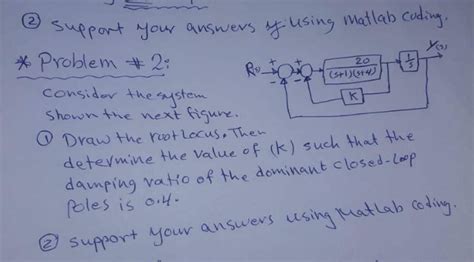 ② Support your answers by using Matlab Coding.
* Problem # 2:
R(s) + - + - 20 / (s+1)(s+4) 1/s Y(s)
K
Consider the system
shown the next figure.
① Draw the root locus. Then
determine the value of (K) such that the
damping ratio of the dominant closed-loop
poles is 0.4.
② Support your answers using Matlab coding.